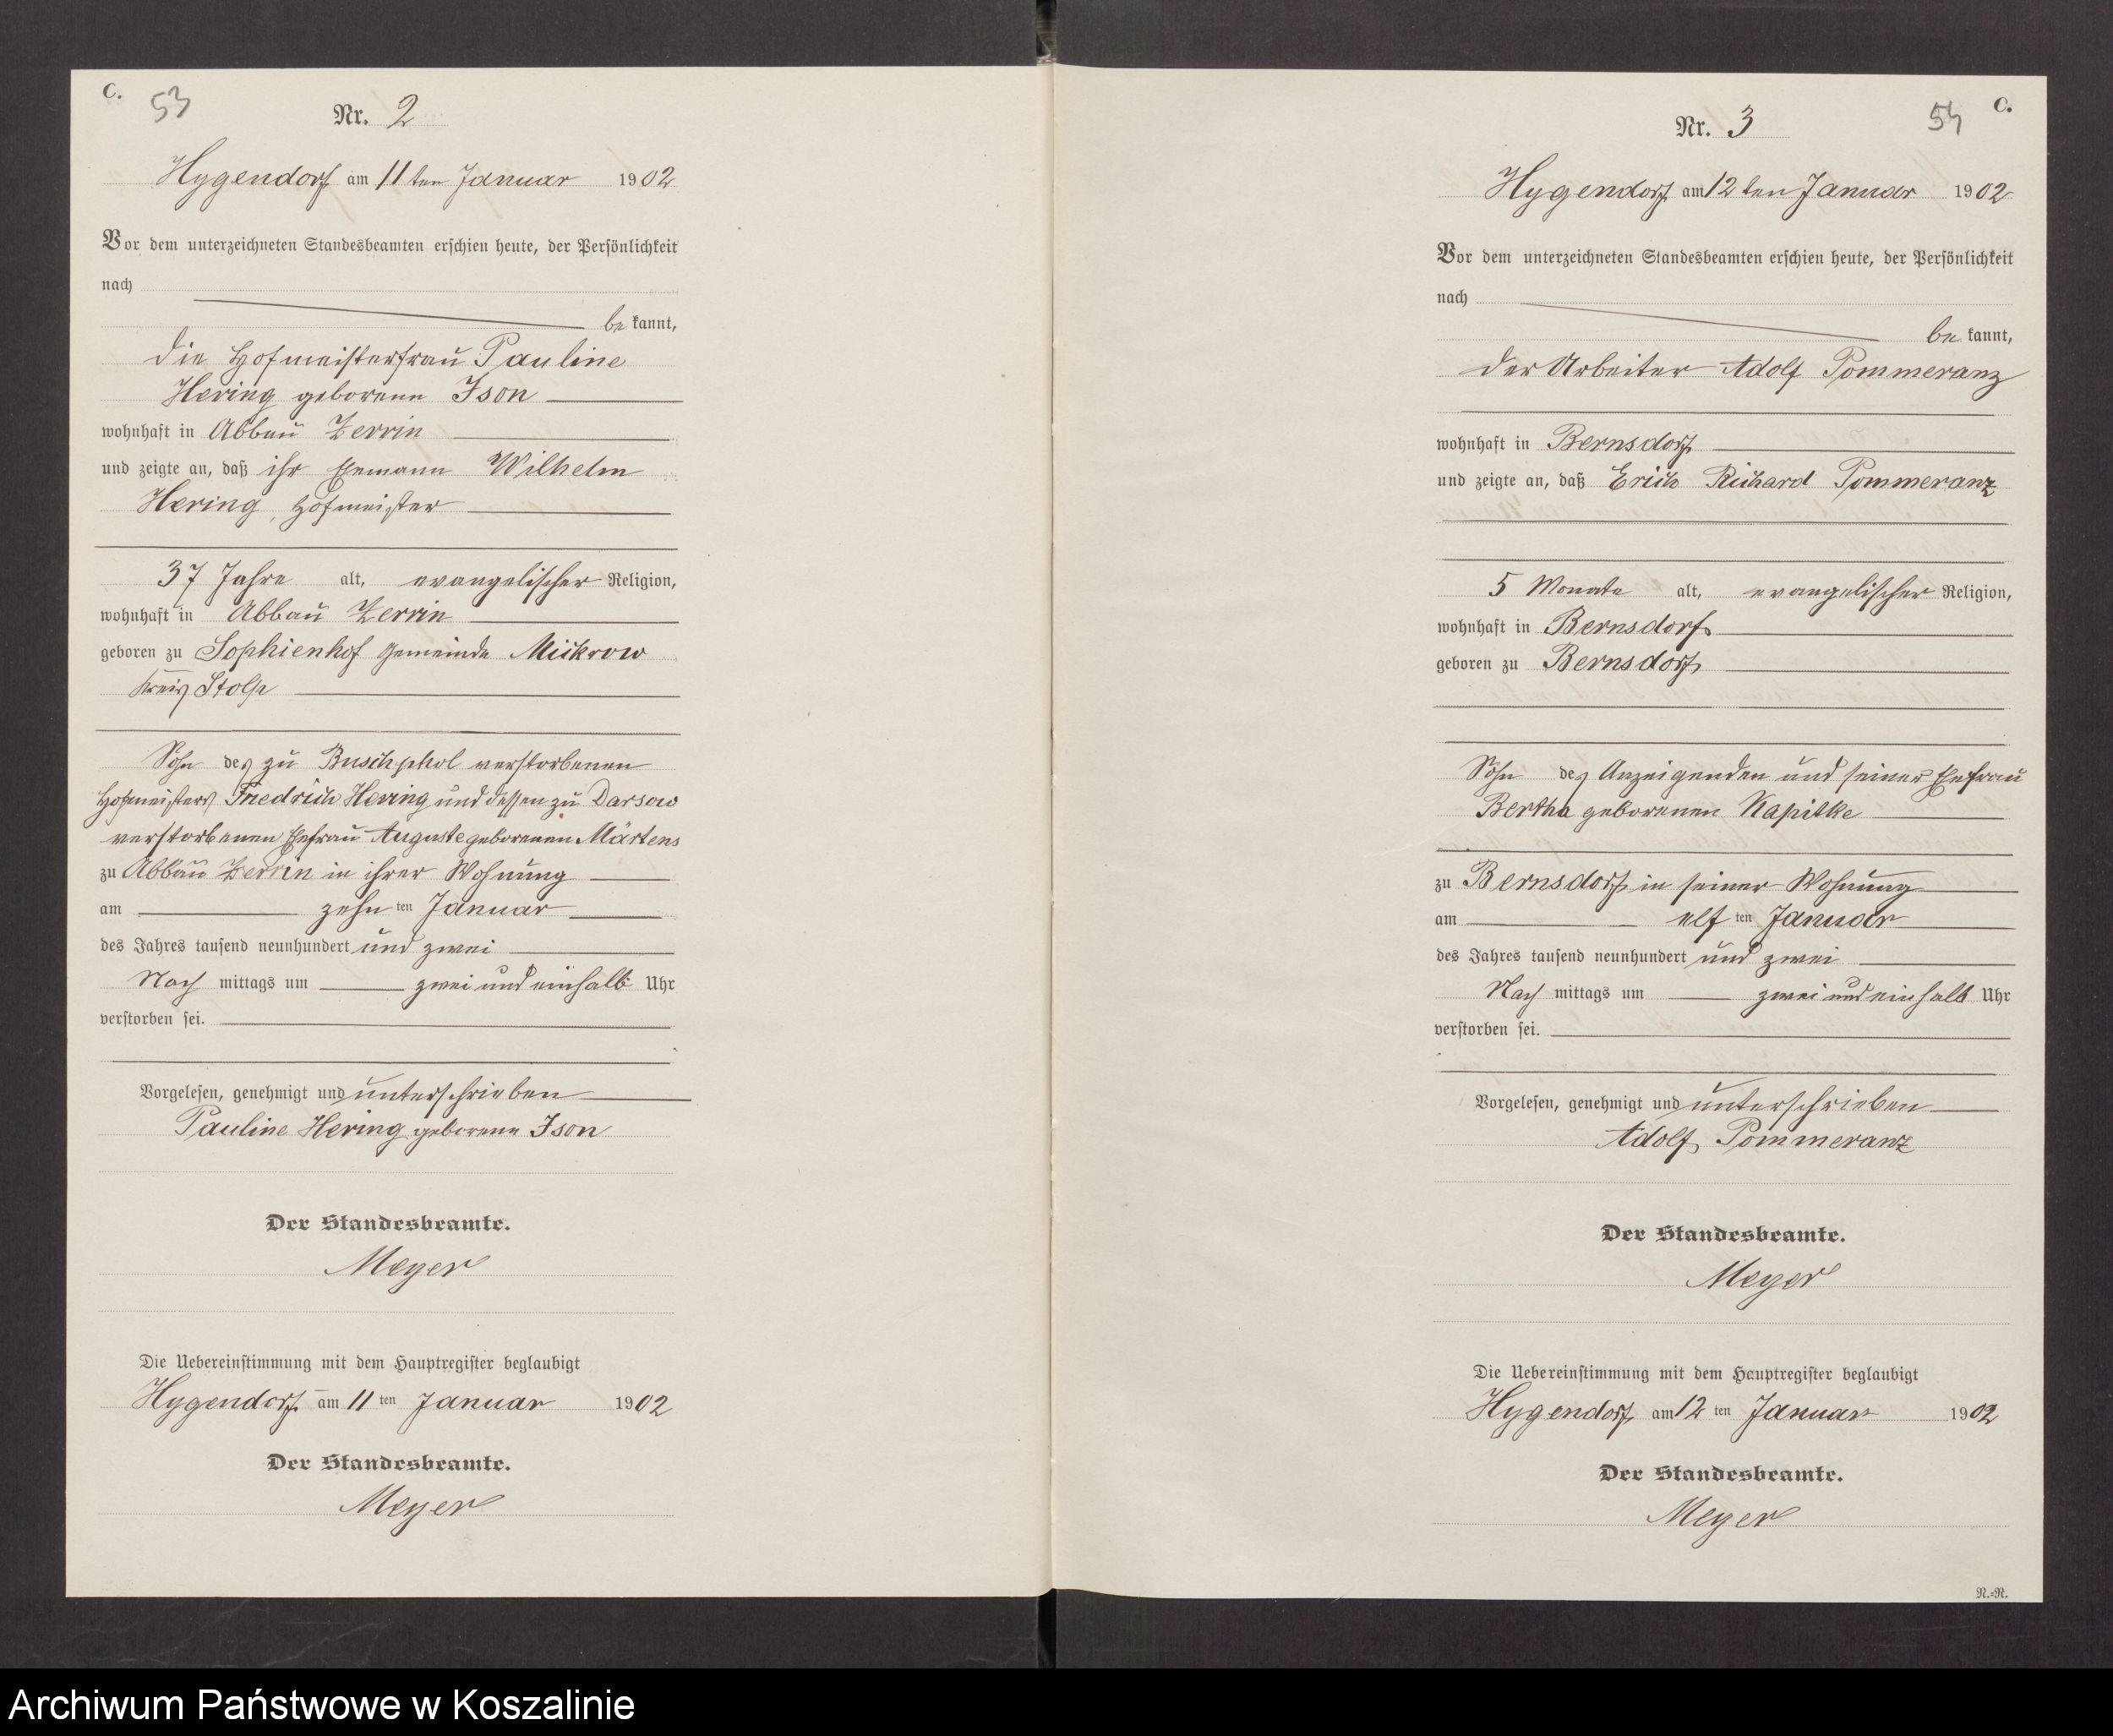 C.
53
Nr. 2
Hygendorf am 11ten Januar 1902
Vor dem unterzeichneten Standesbeamten erschien heute, der Persönlichkeit
nach
bekannt,
die Hofmeisterfrau Pauline
Hering geborene Ison
wohnhaft in Abbau Zerrin
und zeigte an, daß ihr Ehemann Wilhelm
Hering, Hofmeister
37 Jahre alt, evangelischer Religion,
wohnhaft in Abbau Zerrin
geboren zu Sophienhof Gemeinde Mickrow
Kreis Stolp
Sohn des zu Buschphol verstorbenen
Hofmeisters Friedrich Hering und dessen zu Darsow
verstorbenen Ehefrau Auguste geborenen Märtens
zu Abbau Zerrin in ihrer Wohnung
am zehn ten Januar
des Jahres tausend neunhundert und zwei
Nach mittags um zwei und einhalb Uhr
verstorben sei.
Vorgelesen, genehmigt und unterschrieben
Pauline Hering geborene Ison
Der Standesbeamte.
Meyer
Die Uebereinstimmung mit dem Hauptregister beglaubigt
Hygendorf am 11 ten Januar 1902
Der Standesbeamte.
Meyer
C.
54
Nr. 3
Hygendorf am 12ten Januar 1902
Vor dem unterzeichneten Standesbeamten erschien heute, der Persönlichkeit
nach
bekannt,
der Arbeiter Adolf Pommeranz
wohnhaft in Bernsdorf
und zeigte an, daß Erich Richard Pommeranz
5 Monate alt, evangelischer Religion,
wohnhaft in Bernsdorf
geboren zu Bernsdorf
Sohn des Anzeigenden und seiner Ehefrau
Bertha geborenen Kapitke
zu Bernsdorf in seiner Wohnung
am elf ten Januar
des Jahres tausend neunhundert und zwei
Nach mittags um zwei und einhalb Uhr
verstorben sei.
Vorgelesen, genehmigt und unterschrieben
Adolf Pommeranz
Der Standesbeamte.
Meyer
Die Uebereinstimmung mit dem Hauptregister beglaubigt
Hygendorf am 12 ten Januar 1902
Der Standesbeamte.
Meyer
N.=R.
Archiwum Państwowe w Koszalinie